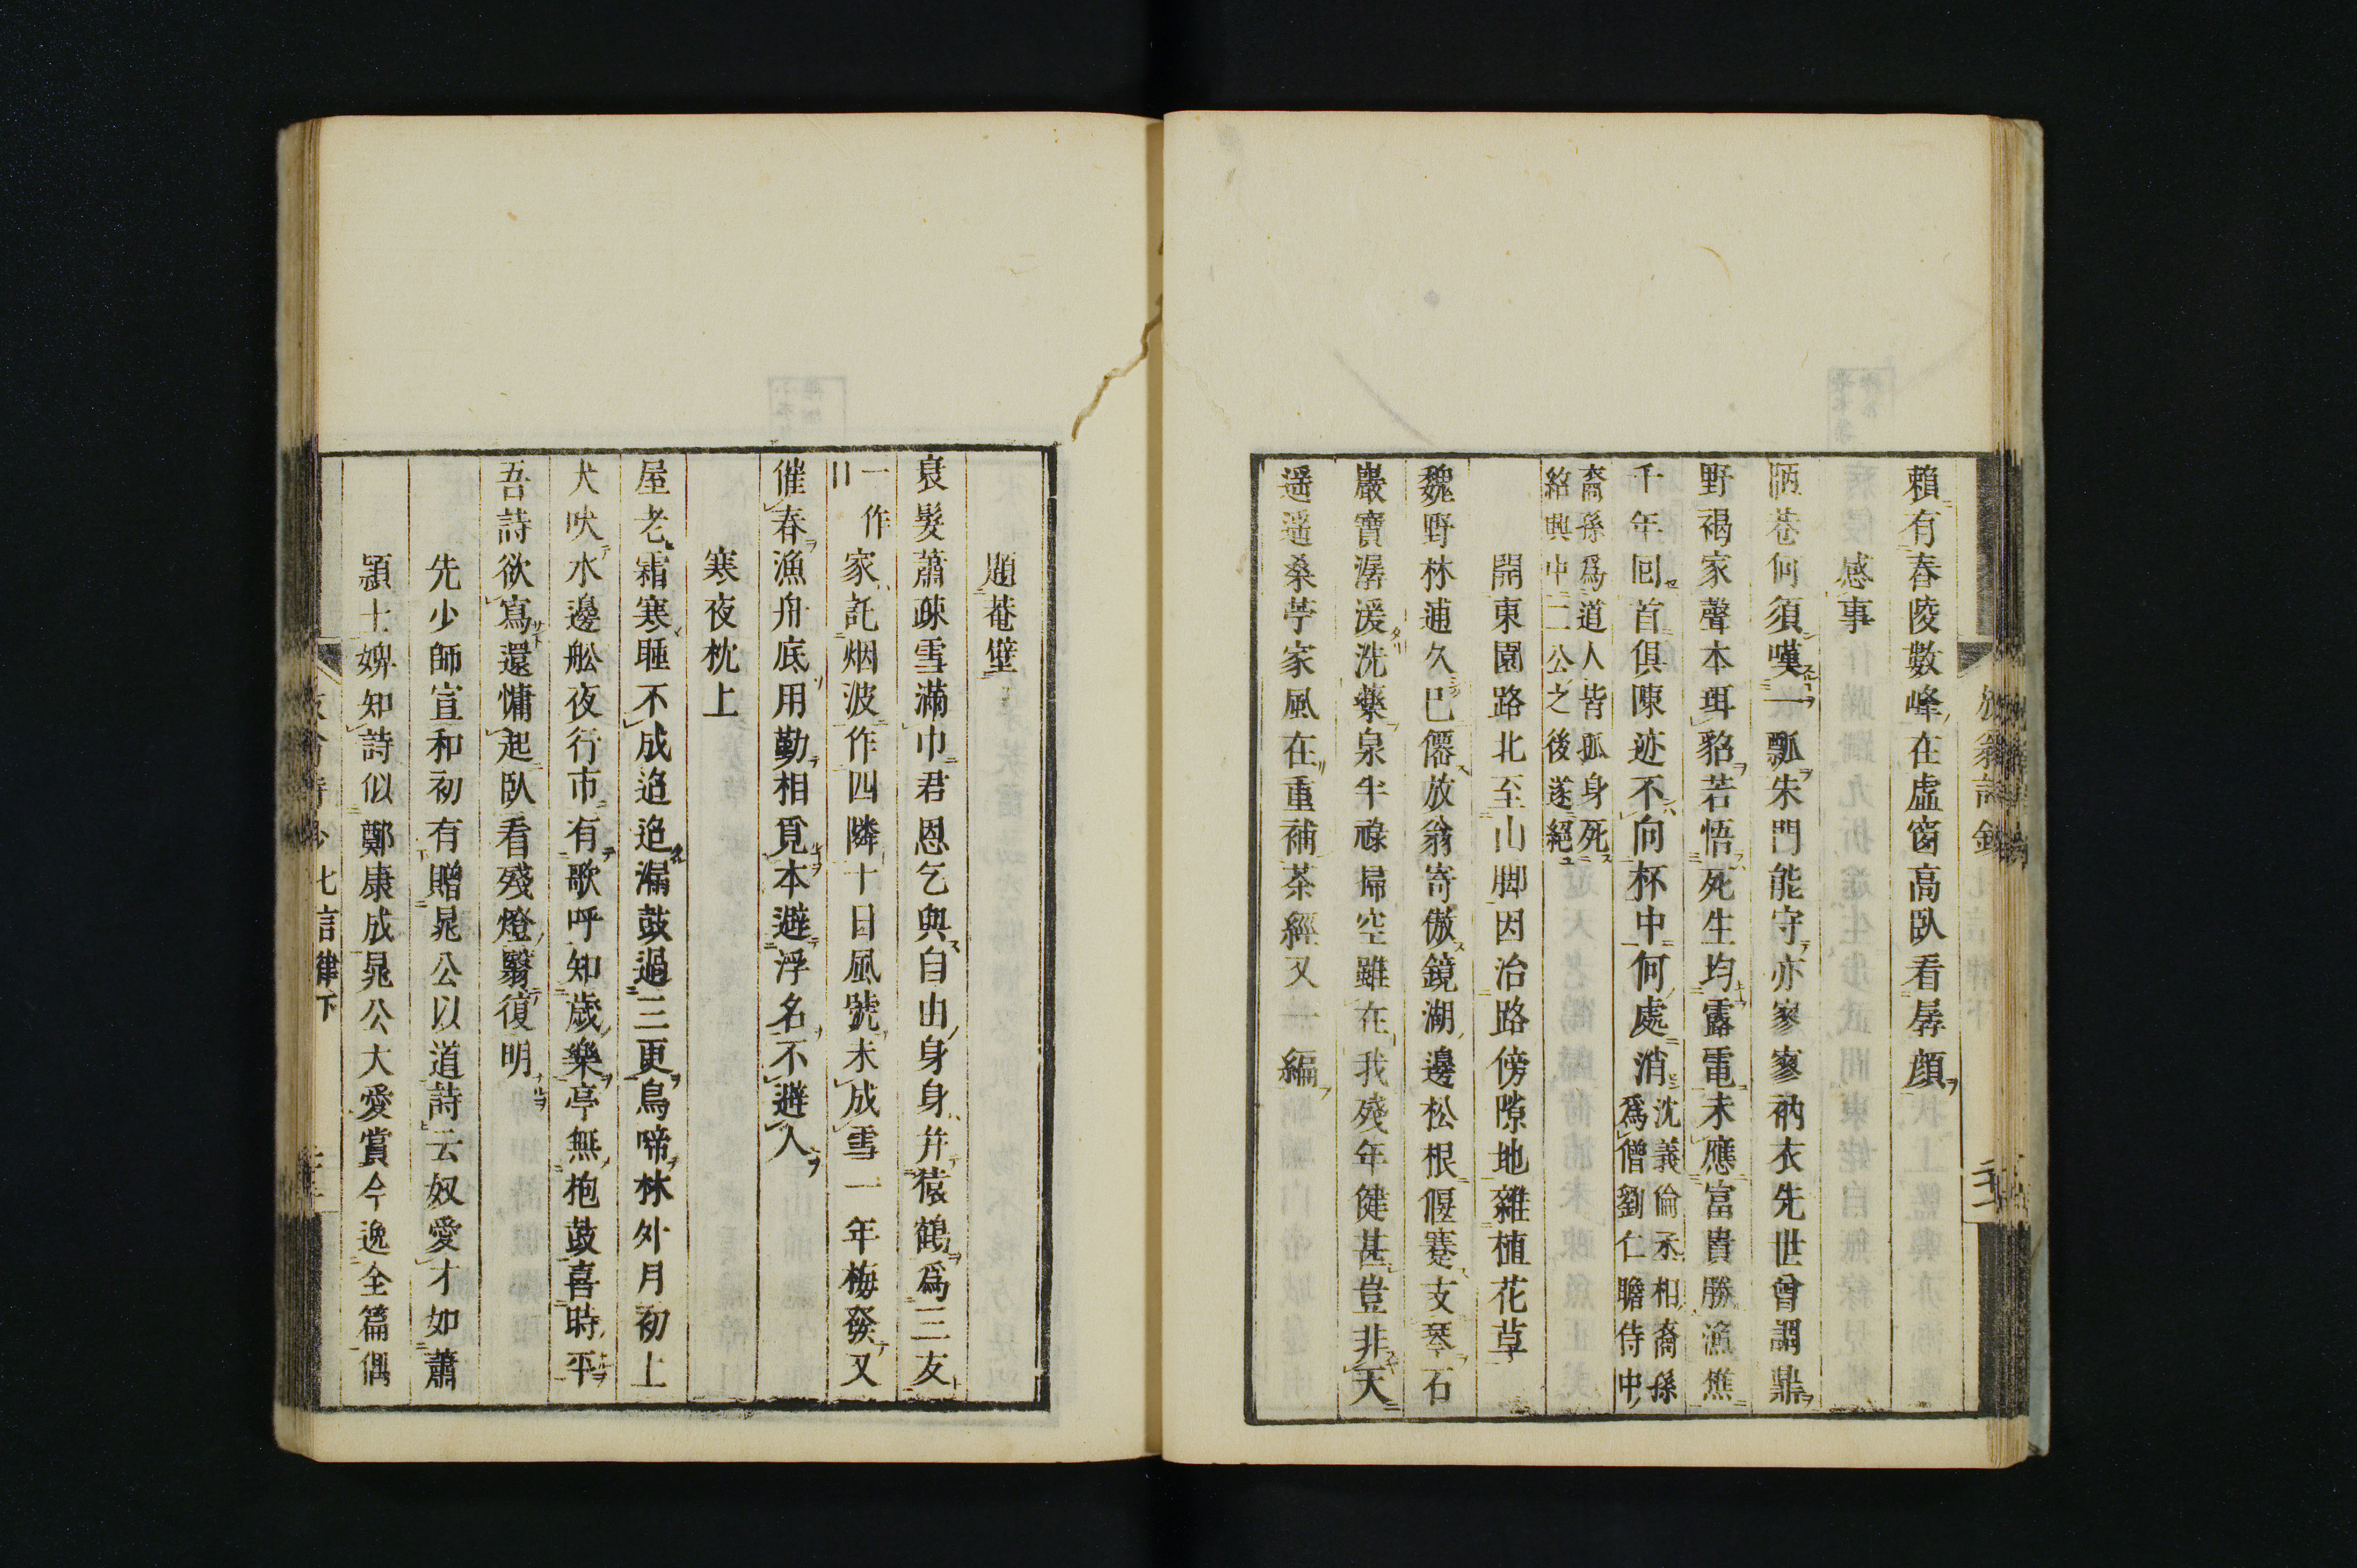 賴有春陵數峰在虛窗高臥看孱顏
感事
陋巷何須嘆一瓢朱門能守亦寥寥衲衣先世曾調鼎
野褐家聲本珥貂若悟死生均露電未應富貴勝漁樵
千年回首俱陳迹不向杯中何處消
沈義倫丞相裔孫
爲僧劉仁瞻侍中
裔孫爲道人皆孤身死
紹興中二公之後遂絕
開東園路北至山脚因治路傍隙地雜植花草
魏野林逋久已僊放翁寄傲鏡湖邊松根偃蹇支琴石
巖竇潺湲洗藥泉半祿掃空雖在我殘年健甚豈非天
遥遥桑苧家風在重補茶經又一編
放翁詩鈔
題菴壁
衰髮蕭疎雪滿巾君恩乞與自由身身幷猿鶴爲三友
一作
家託烟波作四隣十日風號未成雪一年梅發又
催春漁舟底用勤相覓本避浮名不避人
寒夜枕上
屋老霜寒睡不成迢迢漏鼓過三更烏啼林外月初上
犬吠水邊舩夜行市有歌呼知歲樂亭無枹鼓喜時平
吾詩欲寫還慵起臥看殘燈翳復明
先少師宣和初有贈晁公以道詩云奴愛才如蕭
頴士婢知詩似鄭康成晁公大愛賞今逸全篇偶
七言律下